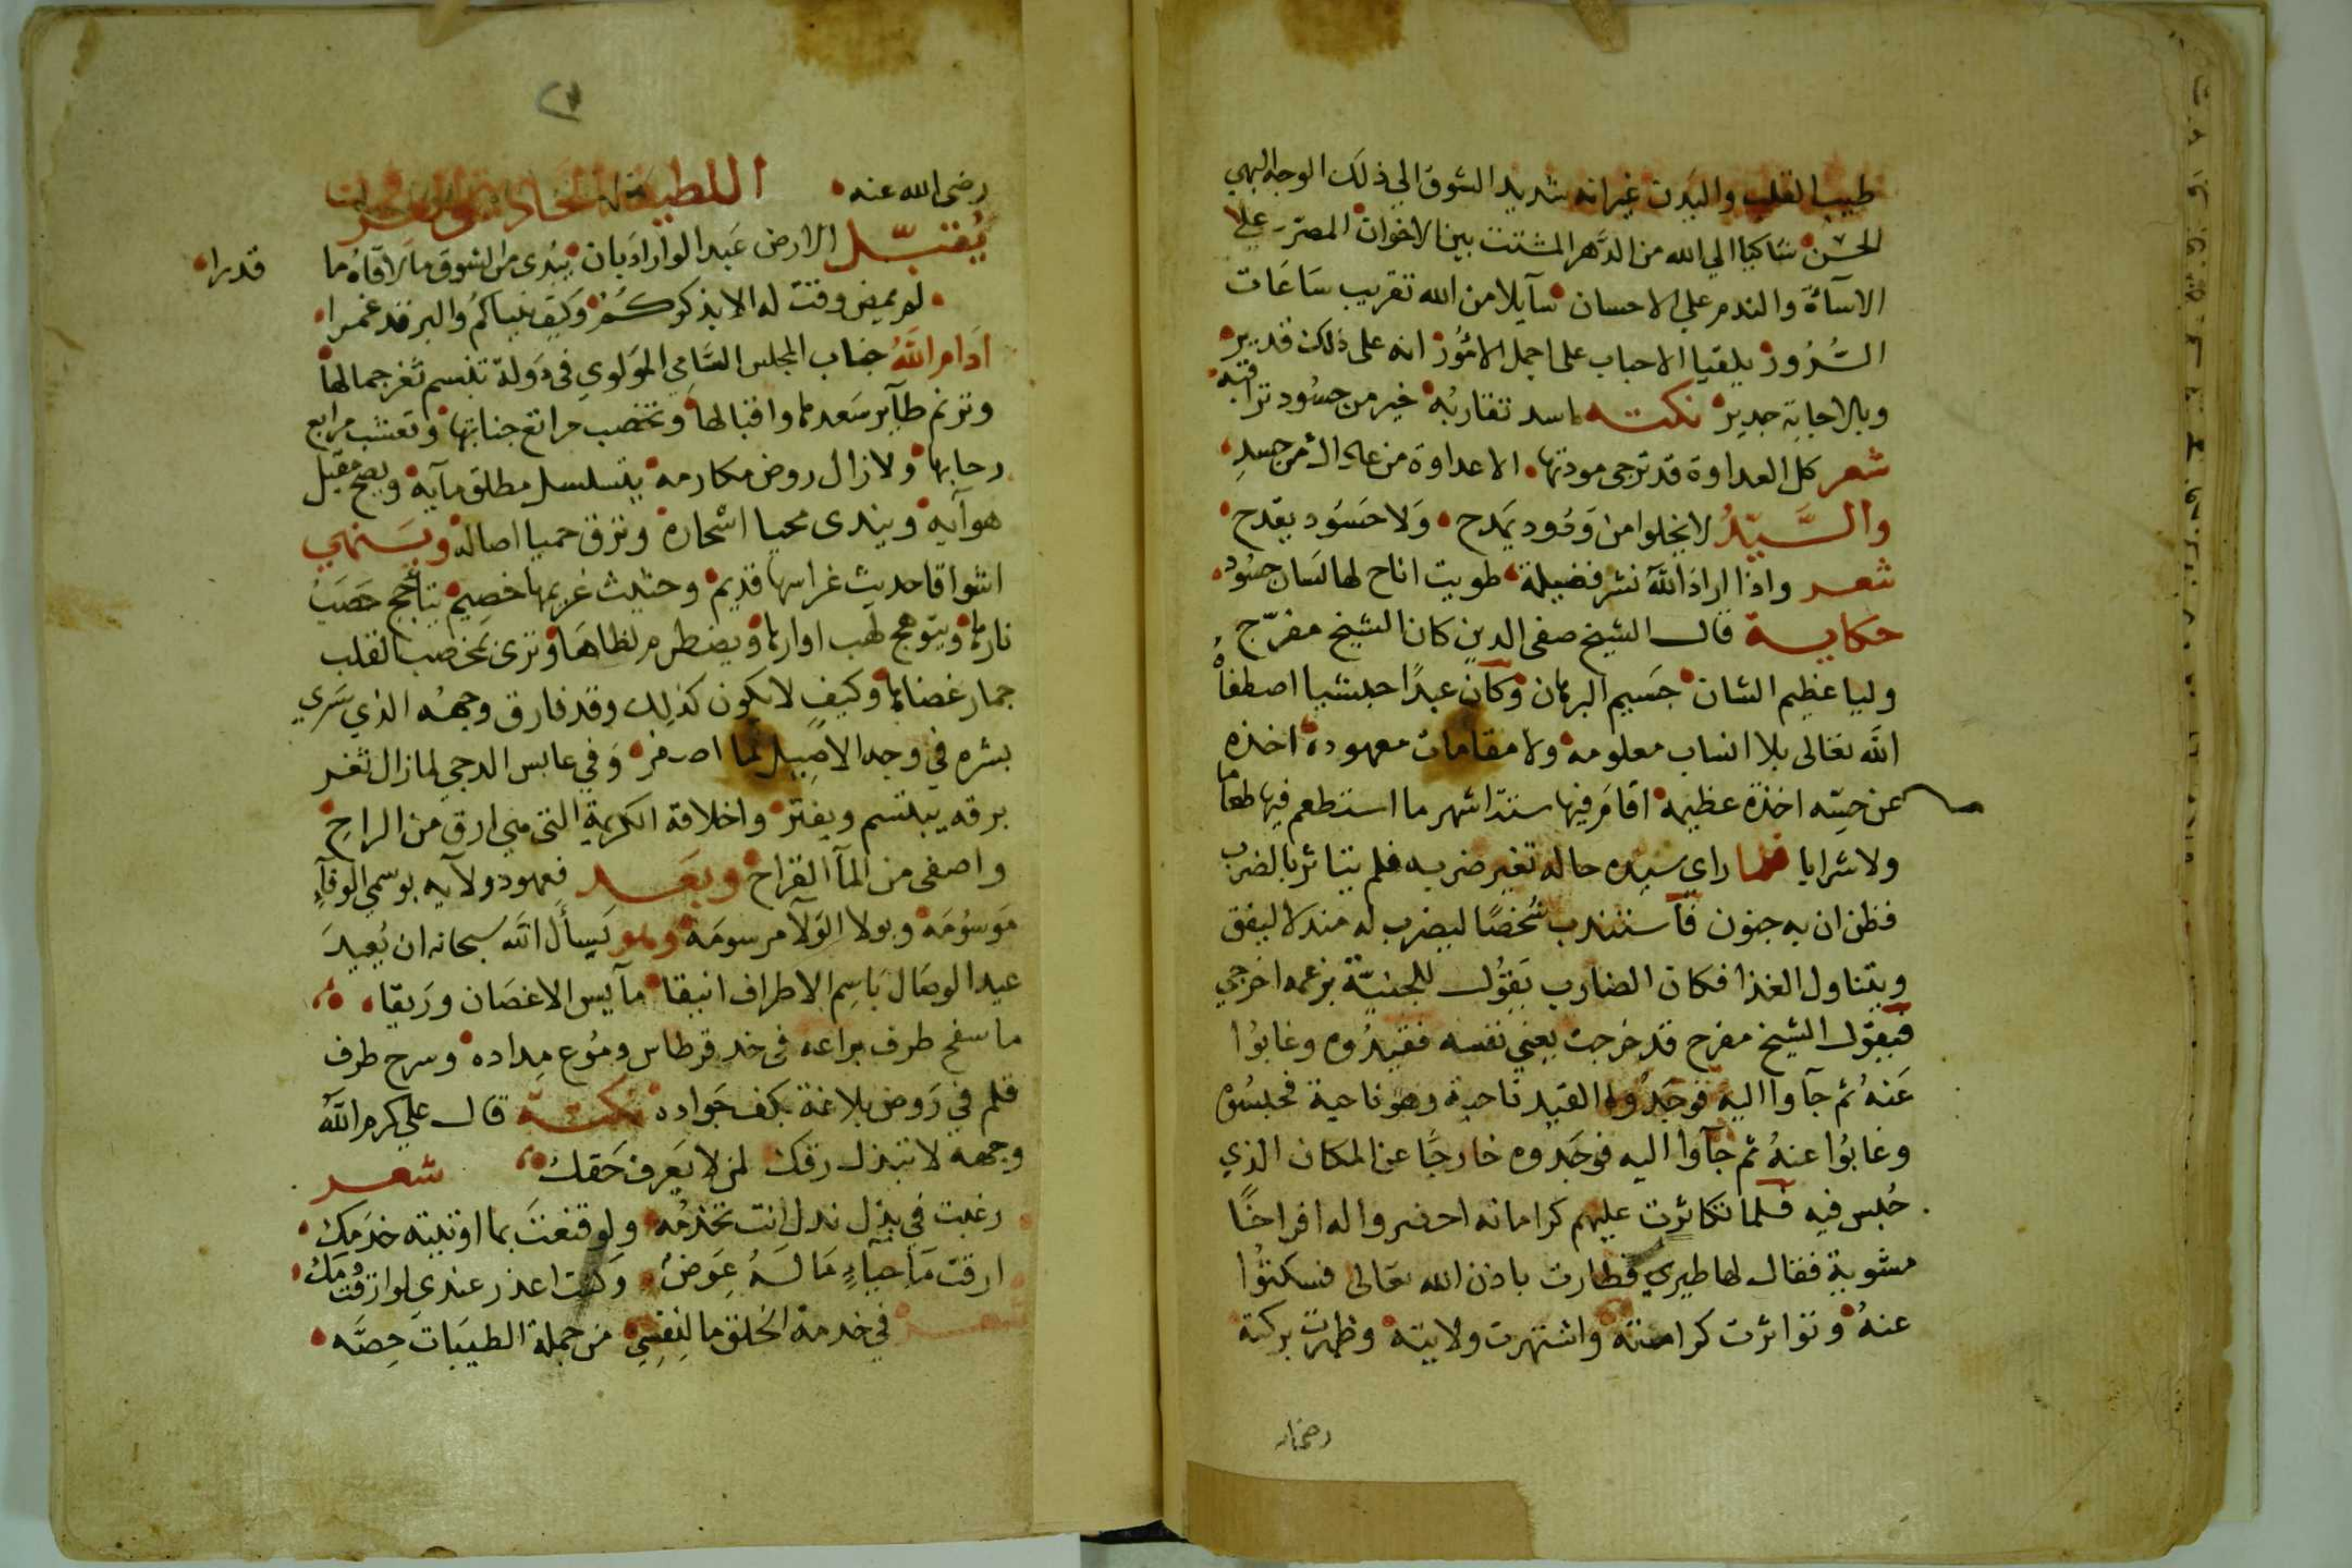 طيب القلب والبدن غير انه شديد الشوق الي ذلك الوجه البهي
الحسن شاكيا الي الله من الدهر المشتت بين الاخوان المصر علي
الاسآة والندم علي الاحسان سآيلا من الله تقريب ساعات
السرور بلقيا الاحباب على اجمل الامور انه على ذلك قدير
وبالاجابة جدير نكته اسد تقاربه خير من حسود تراقبه
شعر كل العداوة قد ترجى مودتها الا عداوة من عاداك من حسد
والسيد لا يخلوا من ودود يمدح ولا حسود يقدح
شعر واذا اراد الله نشر فضيلة طويت اتاح لها لسان حسود
حكاية قال الشيخ صفى الدين كان الشيخ مفرج
وليا عظيم الشان جسيم البرهان وكان عبدا حبشيا اصطفاه
الله تعالى بلا انساب معلومه ولا مقامات معهوده اخذه
عن حسه اخذة عظيمه اقام فيها ستة اشهر ما استطعم فيها طعاما
ولا شرابا فلما راى سيده حاله تغير ضربه فلم يتاثر بالضرب
فظن ان به جنون فاستندب شخصا ليضرب له مندلا ليفق
ويتناول الغذا فكان الضارب يقول للجنية بزعمه اخرجي
فيقول الشيخ مفرح قد خرجت يعني نفسه فقيدوه وغابوا
عنه ثم جآوا اليه فوجدوا القيد ناحية وهو ناحية فحبسوه
وغابوا عنه ثم جآوا اليه فوجدوه خارجا عن المكان الذي
حبس فيه فلما تكاثرت عليهم كراماته احضروا له افراخا
مشوية فقال لها طيري فطارت باذن الله تعالى فسكتوا
عنه وتواترت كرامته واشتهرت ولايته وظهرت بركته
رضى الله عنه اللطيفة الحاديه والعشرون
يقبل الارض عبد الوارادبان يبدى من الشوق ما لاقاه ما قدرا
لم يمض وقت له الا بذكركم وكيف ينساكم والبر قد غمرا
ادام الله جناب المجلس السامي المولوي فى دولة تبتسم ثغر جمالها
وترنم طآير سعدها واقبالها وتخصب مراتع جنابها وتعشب مرابع
رحابها ولا زال روض مكارمه يتسلسل مطلق مآيه ويصح مقبل
هوآيه ويندى محيا اسحاره وترق حميا اصاله وينهي
اشواقا حديث غراسها قديم وحثيث غريمها خصيم يتأجج حصب
نارها ويتوهج لهب اوارها ويضطرم لظاها وترى بمخصب القلب
جمار غضاها وكيف لا يكون كذلك وقد فارق وجهه الذي سري
بشره في وجه الاصيل لما اصفر وفي عابس الدجي لما زال ثغر
برقه يبتسم ويفتر واخلاقه الكريمة التى هي ارق من الراح
واصفى من المآ القراح وبعد فعهود ولآيه بوسمي الوفآ
موسومة وبولا الولآ مرسومة وهو يسأل الله سبحانه ان يعيد
عيد الوصال باسم الاطراف انيقا مآيس الاغصان وريقا
ما سفح طرف يراعه فى خد قرطاس دموع مداده وسرح طرف
قلم في روض بلاغة بكف جواده نكتة قال علي كرم الله
وجهه لا تبذل رقك لمن لا يعرف حقك شعر
رغبت في بذل نذل انت تخدمه ولو قنعت بما اوتيته خدمك
ارقت مآ حيآء ما له عوض وكنت اعذر عندي لو ارقت دمك
شعر في خدمة الخلق ما لنفسي من جملة الطيبات حصه